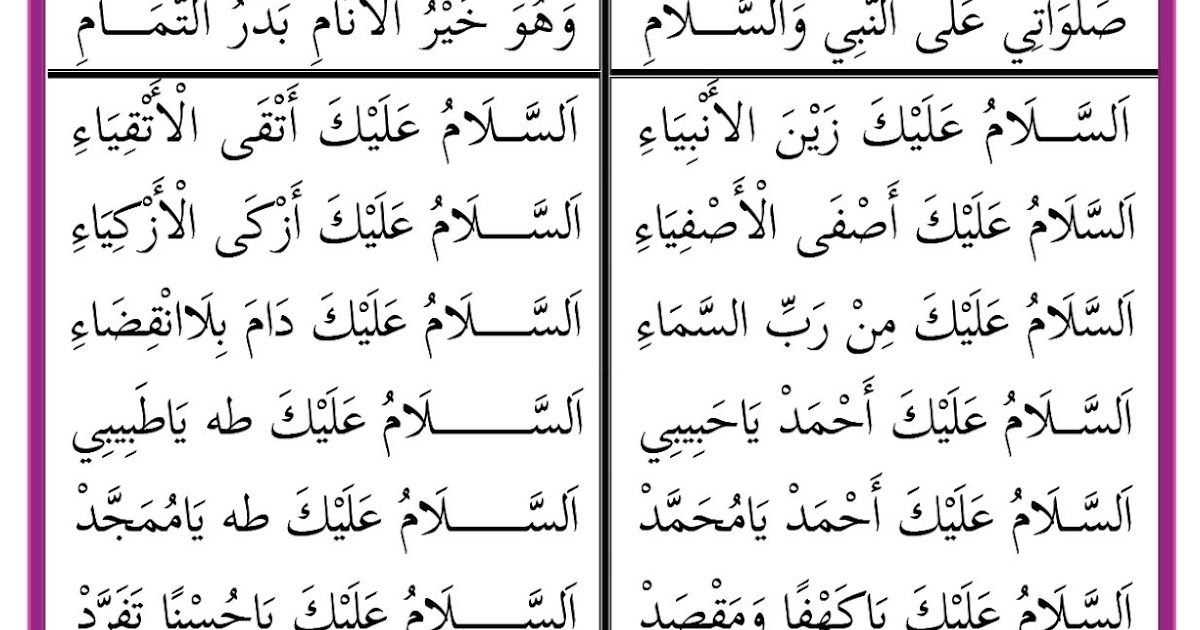 صَلَوَاتِي عَلَى النَّبِي وَالسَّـــلَامِ وَهُوَ خَيْرُ الْأَنَامِ بَدْرُ التَّمَـــامِ
اَلسَّـــلَامُ عَلَيْكَ زَيْنَ الْأَنْبِيَاءِ اَلسَّـــلَامُ عَلَيْكَ أَتْقَى الْأَتْقِيَاءِ
اَلسَّلَامُ عَلَيْكَ أَصْفَى الْأَصْفِيَاءِ اَلسَّـــلَامُ عَلَيْكَ أَزْكَى الْأَزْكِيَاءِ
اَلسَّلَامُ عَلَيْكَ مِنْ رَبِّ السَّمَاءِ اَلسَّـــلَامُ عَلَيْكَ دَامَ بِلَاانْقِضَاءِ
اَلسَّـــلَامُ عَلَيْكَ أَحْمَدْ يَاحَبِيبِي اَلسَّـــــلَامُ عَلَيْكَ طه يَاطَبِيبِي
اَلسَّـــلَامُ عَلَيْكَ أَحْمَدْ يَامُحَمَّدْ اَلسَّـــــلَامُ عَلَيْكَ طه يَامُمَجَّدْ
اَلسَّـــلَامُ عَلَيْكَ يَاكَهْفًا وَمَقْصَدْ اَلسَّـــلَامُ عَلَيْكَ يَاحُسْنًا تَفَرَّدْ